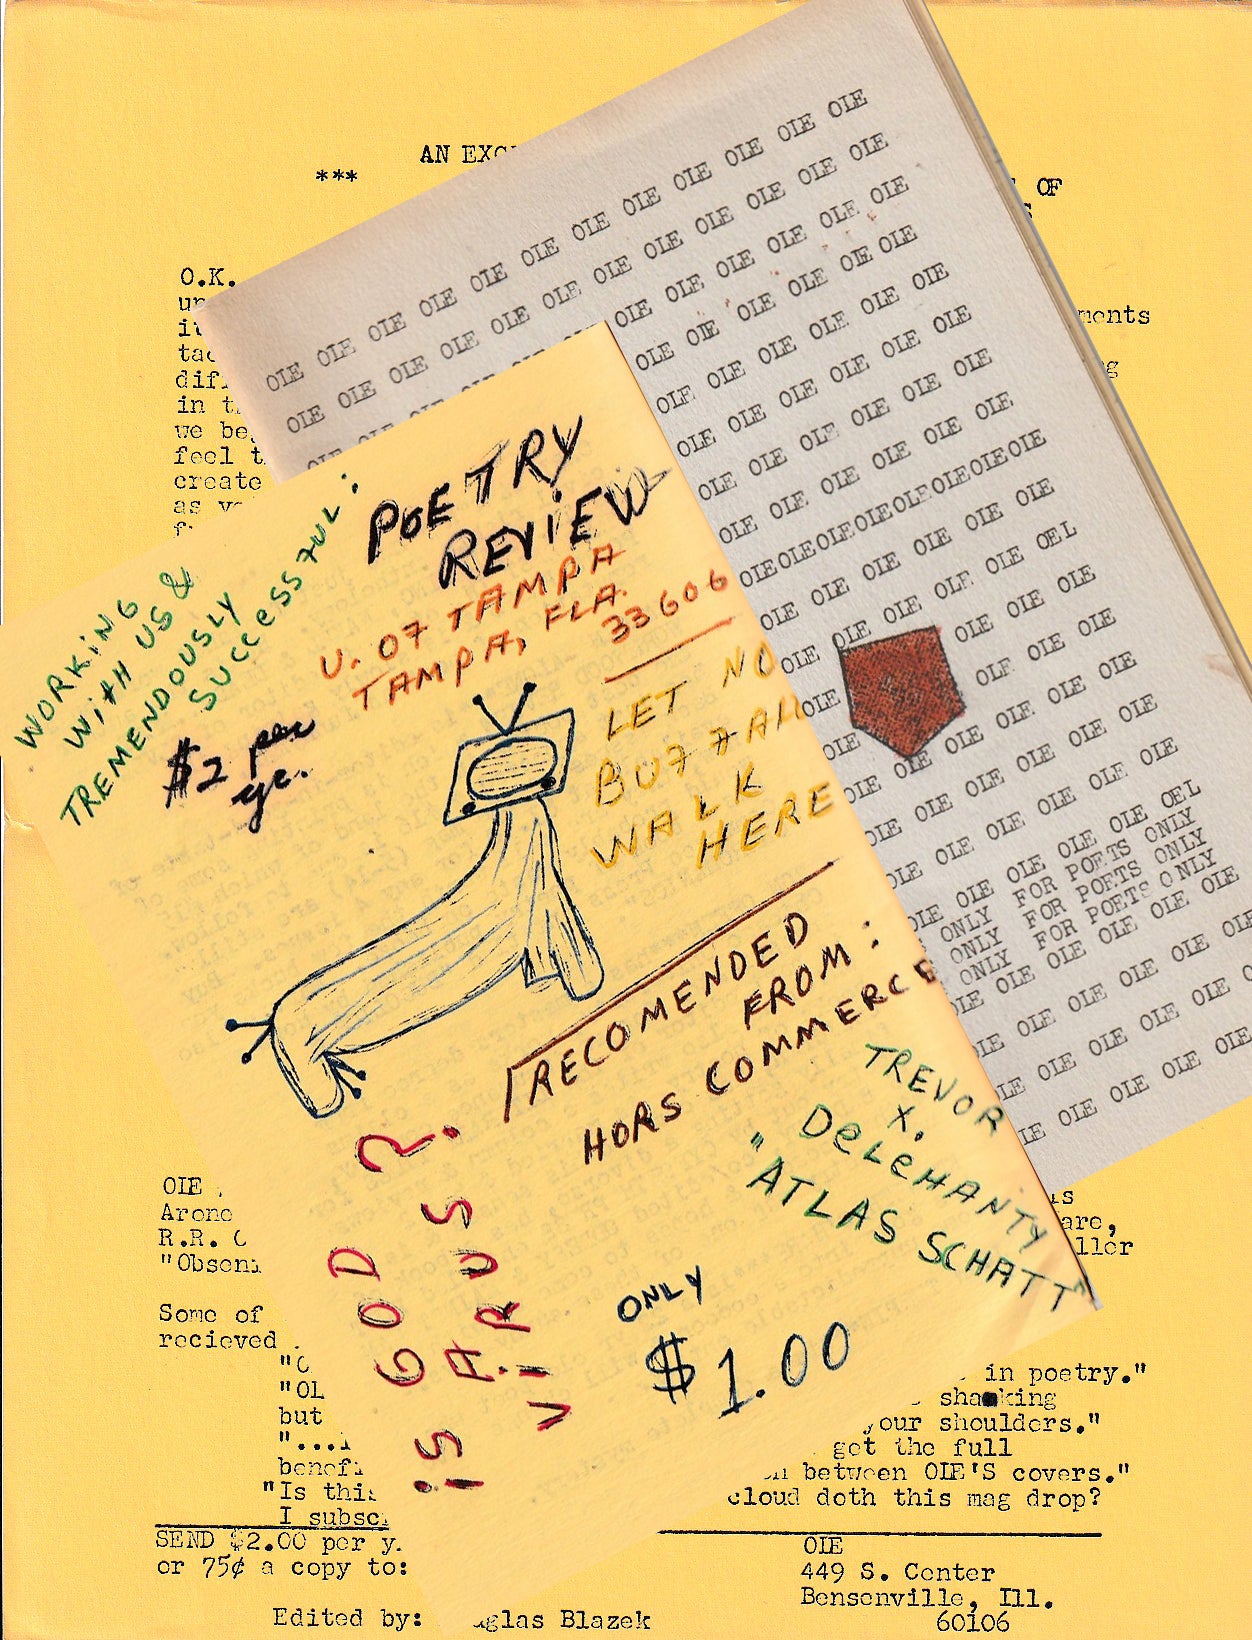 AN
***
OF
O.K.
in
we
feel
create
as
OIE OIE OIE OIE OIE OIE OIE OIE OIE OIE OIE OIE
OIE OIE OIE OIE OIE OIE OIE OIE OIE OIE OIE OIE
OIE OIE OIE OIE OIE OIE
OIE OIE OIE OIE OIE OIE
OIE OIE OIE OIE OIE OIE
OIE OIE OIE OIE OIE OIE
OIE OIE OIE OIE OIE OIE
OIE OIE OIE OIE OIE OIE
OIEOIEOIEOIEOIEOIEOIEOIE
OIE OIE OIE OIE OIE OIE
OIE OIE OIE OIE OIE OEL
OIE OIE OIE OIE OIE OIE
OIE OIE OIE OIE
OIE OIE OIE OIE OIE OIE
OIE OIE OIE OIE OIE OIE
OIE OIE OIE OIE OIE OIE
OIE OIE OIE OIE OIE OEL
ONLY FOR POETS ONLY
ONLY FOR POETS ONLY
ONLY FOR POETS ONLY
OIE OIE OIE OIE OIE OIE
OIE OIE OIE OIE OIE OIE
OIE OIE OIE OIE OIE
OIE OIE OIE OIE OIE
WORKiNG
WitH US &
TREMENDOUSLY
SUCCESS7UL:
$2 per
yr.
POETRY
REViEW
U. O7 TAMPA
TAMPA, FLA.
33606
LET NO
BU77ALO
WALK
HERE
RECOMENDED
FROM:
HORS COMMERCE
TREVOR
X.
DeLeHANTY
"ATLAS SCHATT"
iS GOD ?
A
ViRUS
ONLY
$1.00
OIE
R.R.
Some of
recieved
in poetry."
"OL
but
shaking
your shoulders."
get the full
between OIE'S covers."
"Is this
cloud doth this mag drop?
I
SEND $2.00 per
or 75¢ a copy to:
OIE
449 S. Center
Bensenville, Ill.
60106
Edited by: Blazek